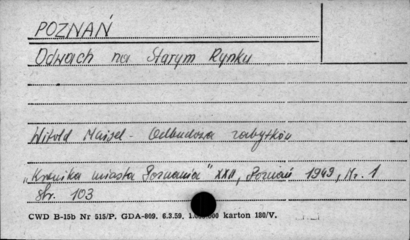 POZNAŃ
Odwach na Starym Rynku
Witold Maisel - Odbudowa zabytków
„Kronika miasta Poznania" XXII, Poznań 1949, Nr. 1
Str. 103
CWD B-15b Nr 515/P. GDA-809. 6.3.59. karton 180/V.